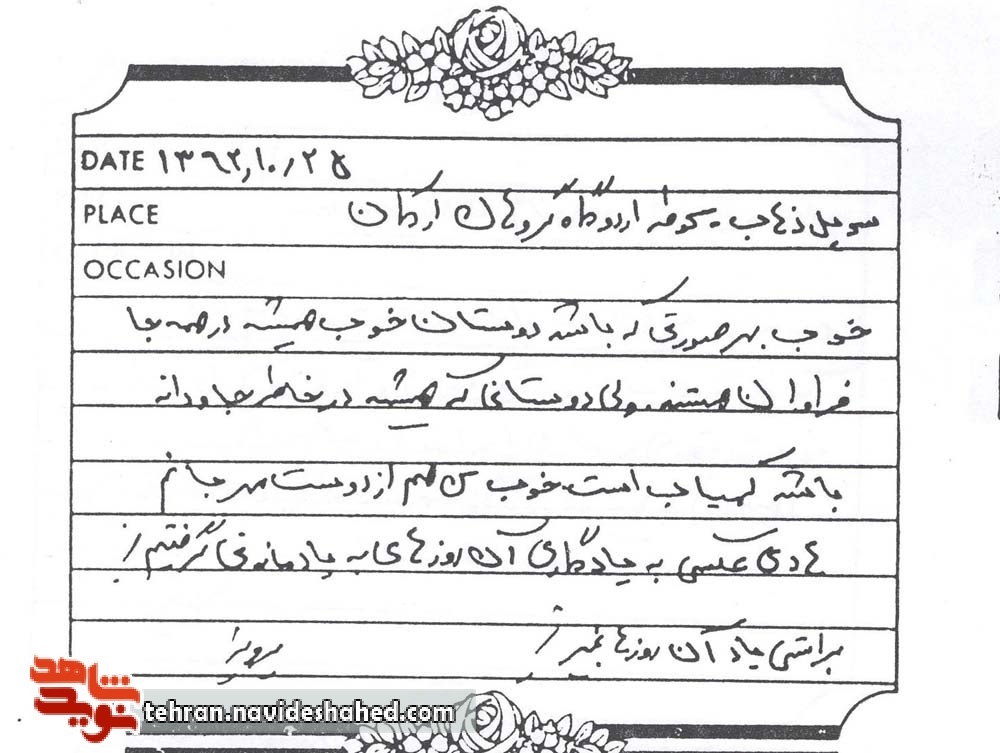 DATE ۱۳۶۲,۱۰/۲۵
PLACE سرپل ذهاب - محوطه اردوگاه گروهان ارکان
OCCASION
خوب بهر صورتی که باشد دوستان خوب همیشه در همه جا
فراوان هستند. ولی دوستانی که همیشه در خاطر جاودانه
باشد کمیاب است، خوب من هم از دوست مهربانم
هادی عکسی به یادگاری آن روزهای به یاد ماندنی گرفتم
یاد آن روزها بخیر
شاهد
نوید
tehran.navideshahed.com